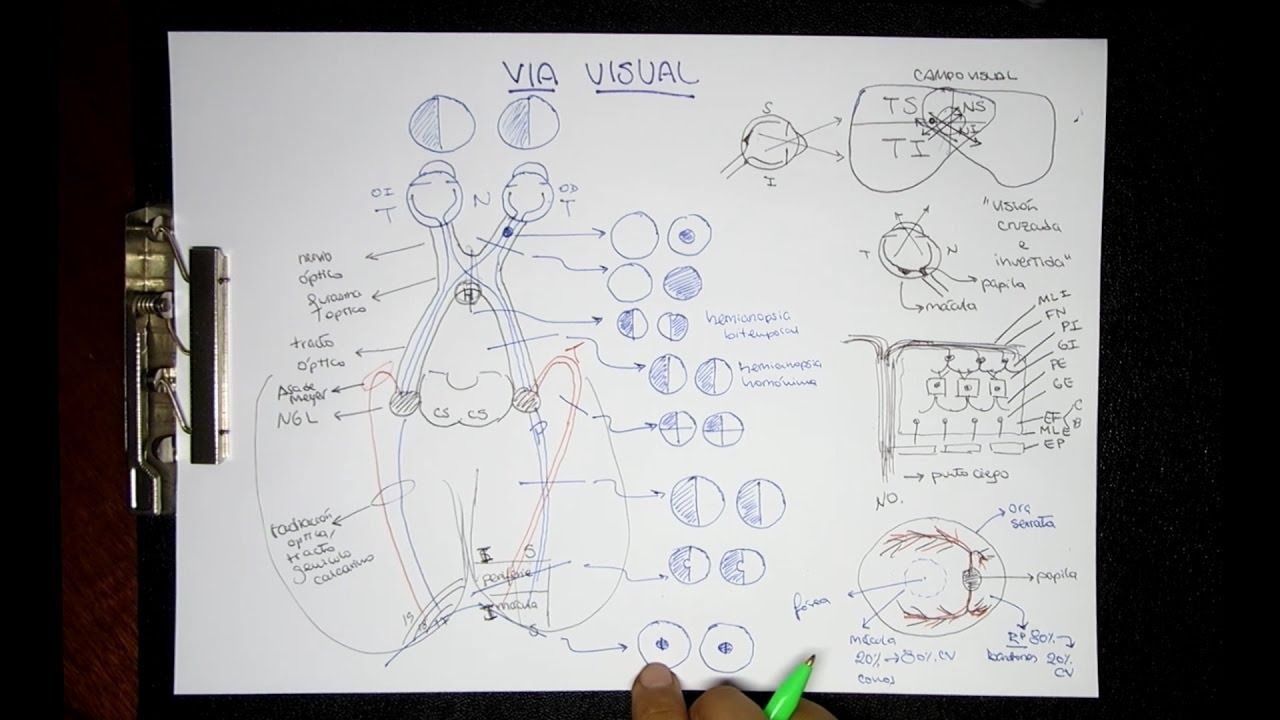 VIA VISUAL
OI
T
N
OD
T
nervio
óptico
quiasma
óptico
H
tracto
óptico
Asa de
Meyer
NGL
CS CS
radiación
óptica/
tracto
geniculo
calcarino
I S
periferie
mácula
I
S
hemianopsia
bitemporal
hemianopsia
homónima
CAMPO VISUAL
S
I
TS NS
TI NI
"VISIÓN
cruzada
e
invertida"
T N
papila
mácula
MLI
FN
PI
GI
PE
GE
EF C
B
MLE
EP
punto ciego
NO.
ora
serrata
papila
fóvea
mácula
20% → 80% CV
conos
RP 80%
bastones 20%
CV